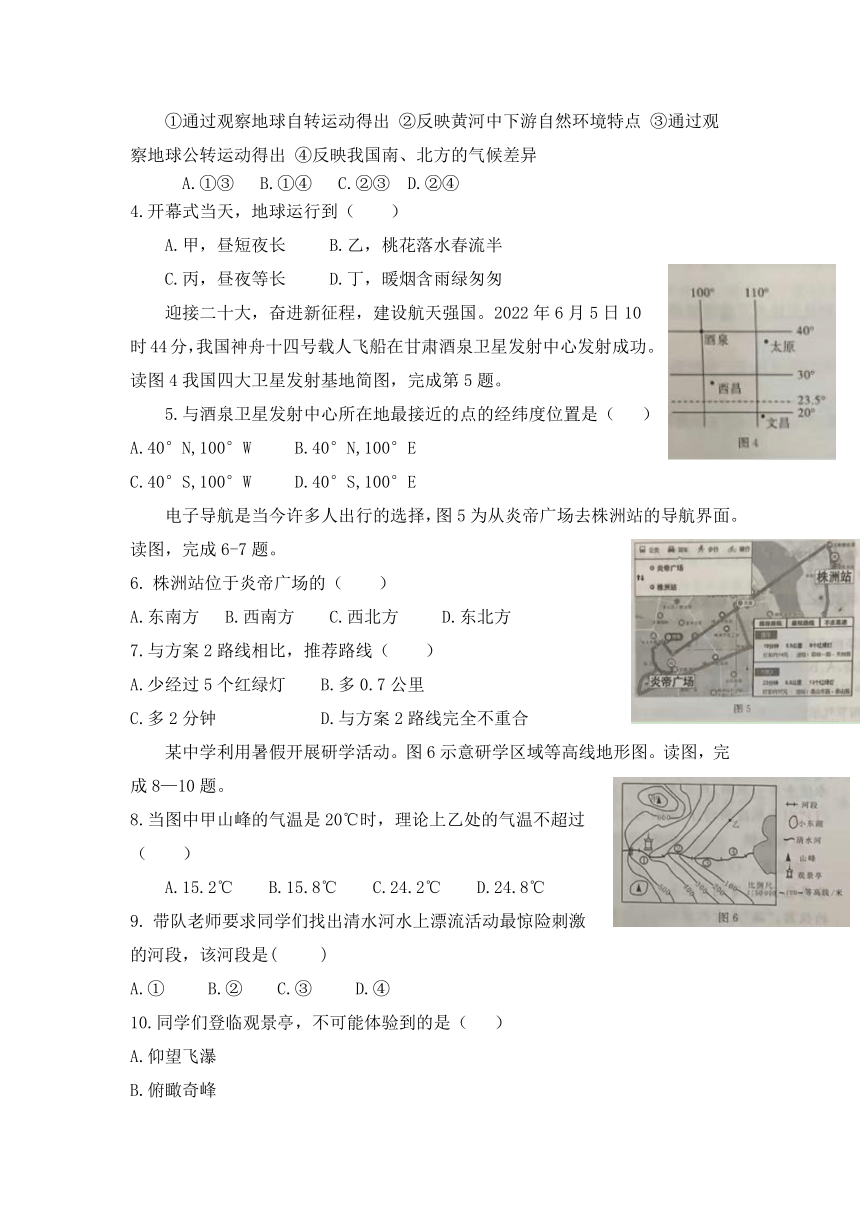 ①通过观察地球自转运动得出 ②反映黄河中下游自然环境特点 ③通过观
察地球公转运动得出 ④反映我国南、北方的气候差异
A.①③ B.①④ C.②③ D.②④
4.开幕式当天，地球运行到（ ）
A.甲，昼短夜长 B.乙，桃花落水春流半
C.丙，昼夜等长 D.丁，暖烟含雨绿匆匆
迎接二十大，奋进新征程，建设航天强国。2022 年 6 月 5 日 10
时 44 分，我国神舟十四号载人飞船在甘肃酒泉卫星发射中心发射成功。
读图 4 我国四大卫星发射基地简图，完成第 5 题。
100° 110°
40°
酒泉
太原
30°
西昌
23.5°
20°
文昌
图 4
5.与酒泉卫星发射中心所在地最接近的点的经纬度位置是（ ）
A.40°N,100°W B.40°N,100°E
C.40°S,100°W D.40°S,100°E
电子导航是当今许多人出行的选择，图 5 为从炎帝广场去株洲站的导航界面。
读图，完成 6-7 题。
炎帝广场
株洲站
株洲站
炎帝广场
图 5
6. 株洲站位于炎帝广场的（ ）
A.东南方 B.西南方 C.西北方 D.东北方
7.与方案 2 路线相比，推荐路线（ ）
A.少经过 5 个红绿灯 B.多 0.7 公里
C.多 2 分钟 D.与方案 2 路线完全不重合
某中学利用暑假开展研学活动。图 6 示意研学区域等高线地形图。读图，完
成 8—10 题。
河段
小东湖
清水河
山峰
观景亭
等高线/米
比例尺
乙
图 6
8.当图中甲山峰的气温是 20℃时，理论上乙处的气温不超过
（ ）
A.15.2℃ B.15.8℃ C.24.2℃ D.24.8℃
9. 带队老师要求同学们找出清水河水上漂流活动最惊险刺激
的河段，该河段是( )
A.① B.② C.③ D.④
10.同学们登临观景亭，不可能体验到的是（ ）
A.仰望飞瀑
B.俯瞰奇峰